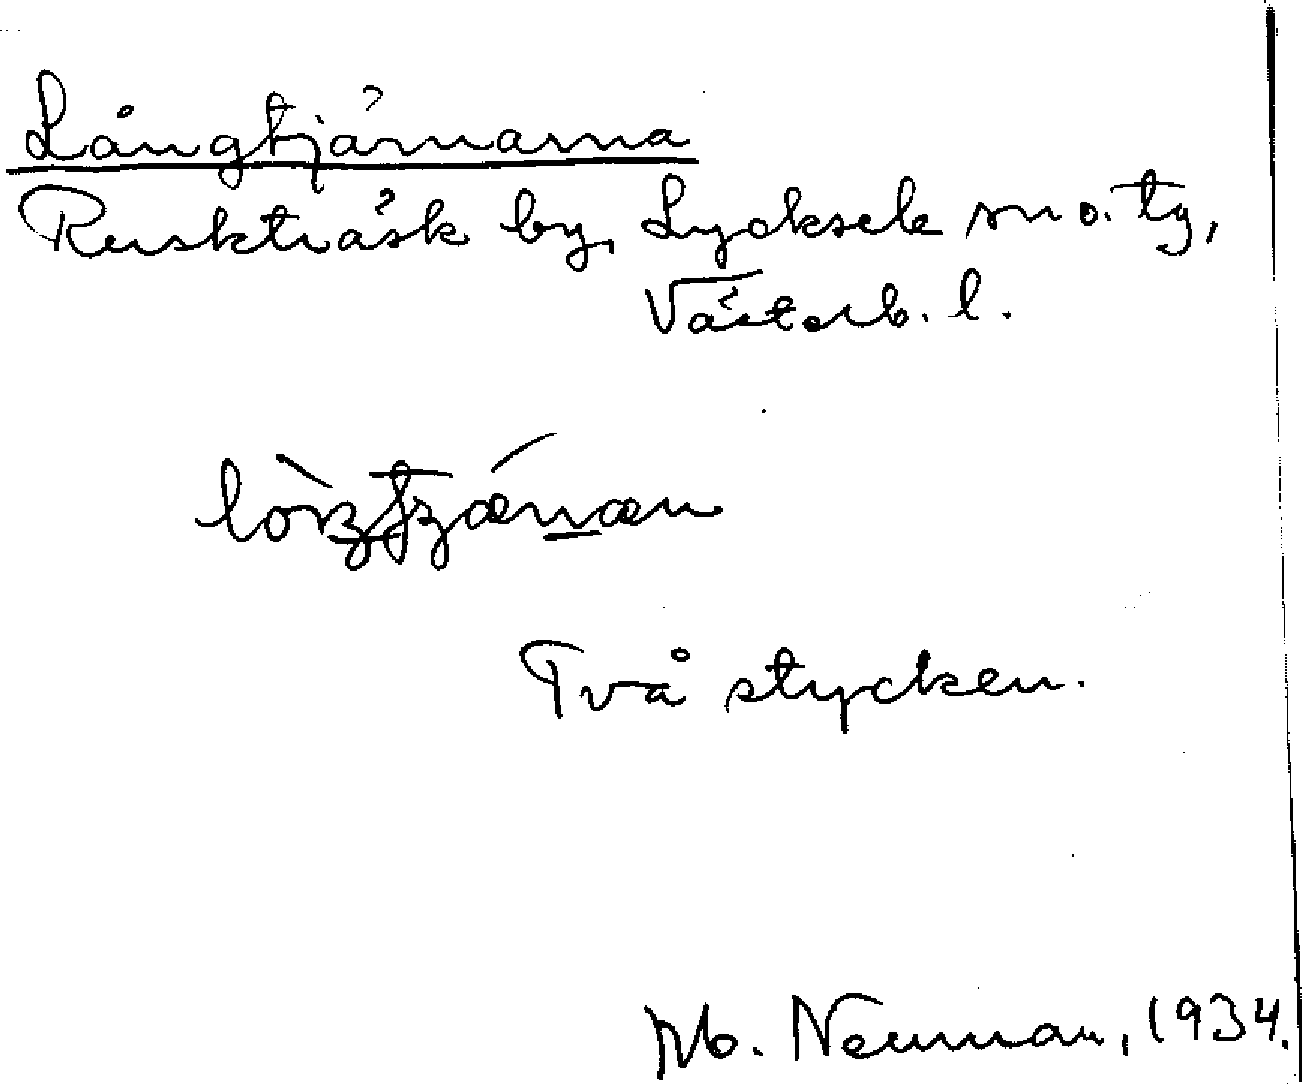 Långtjärnarna
Ruskträsk by, Lycksele sn o. tg,
Västerb. l.
Två stycken.
Neuman, 1934.